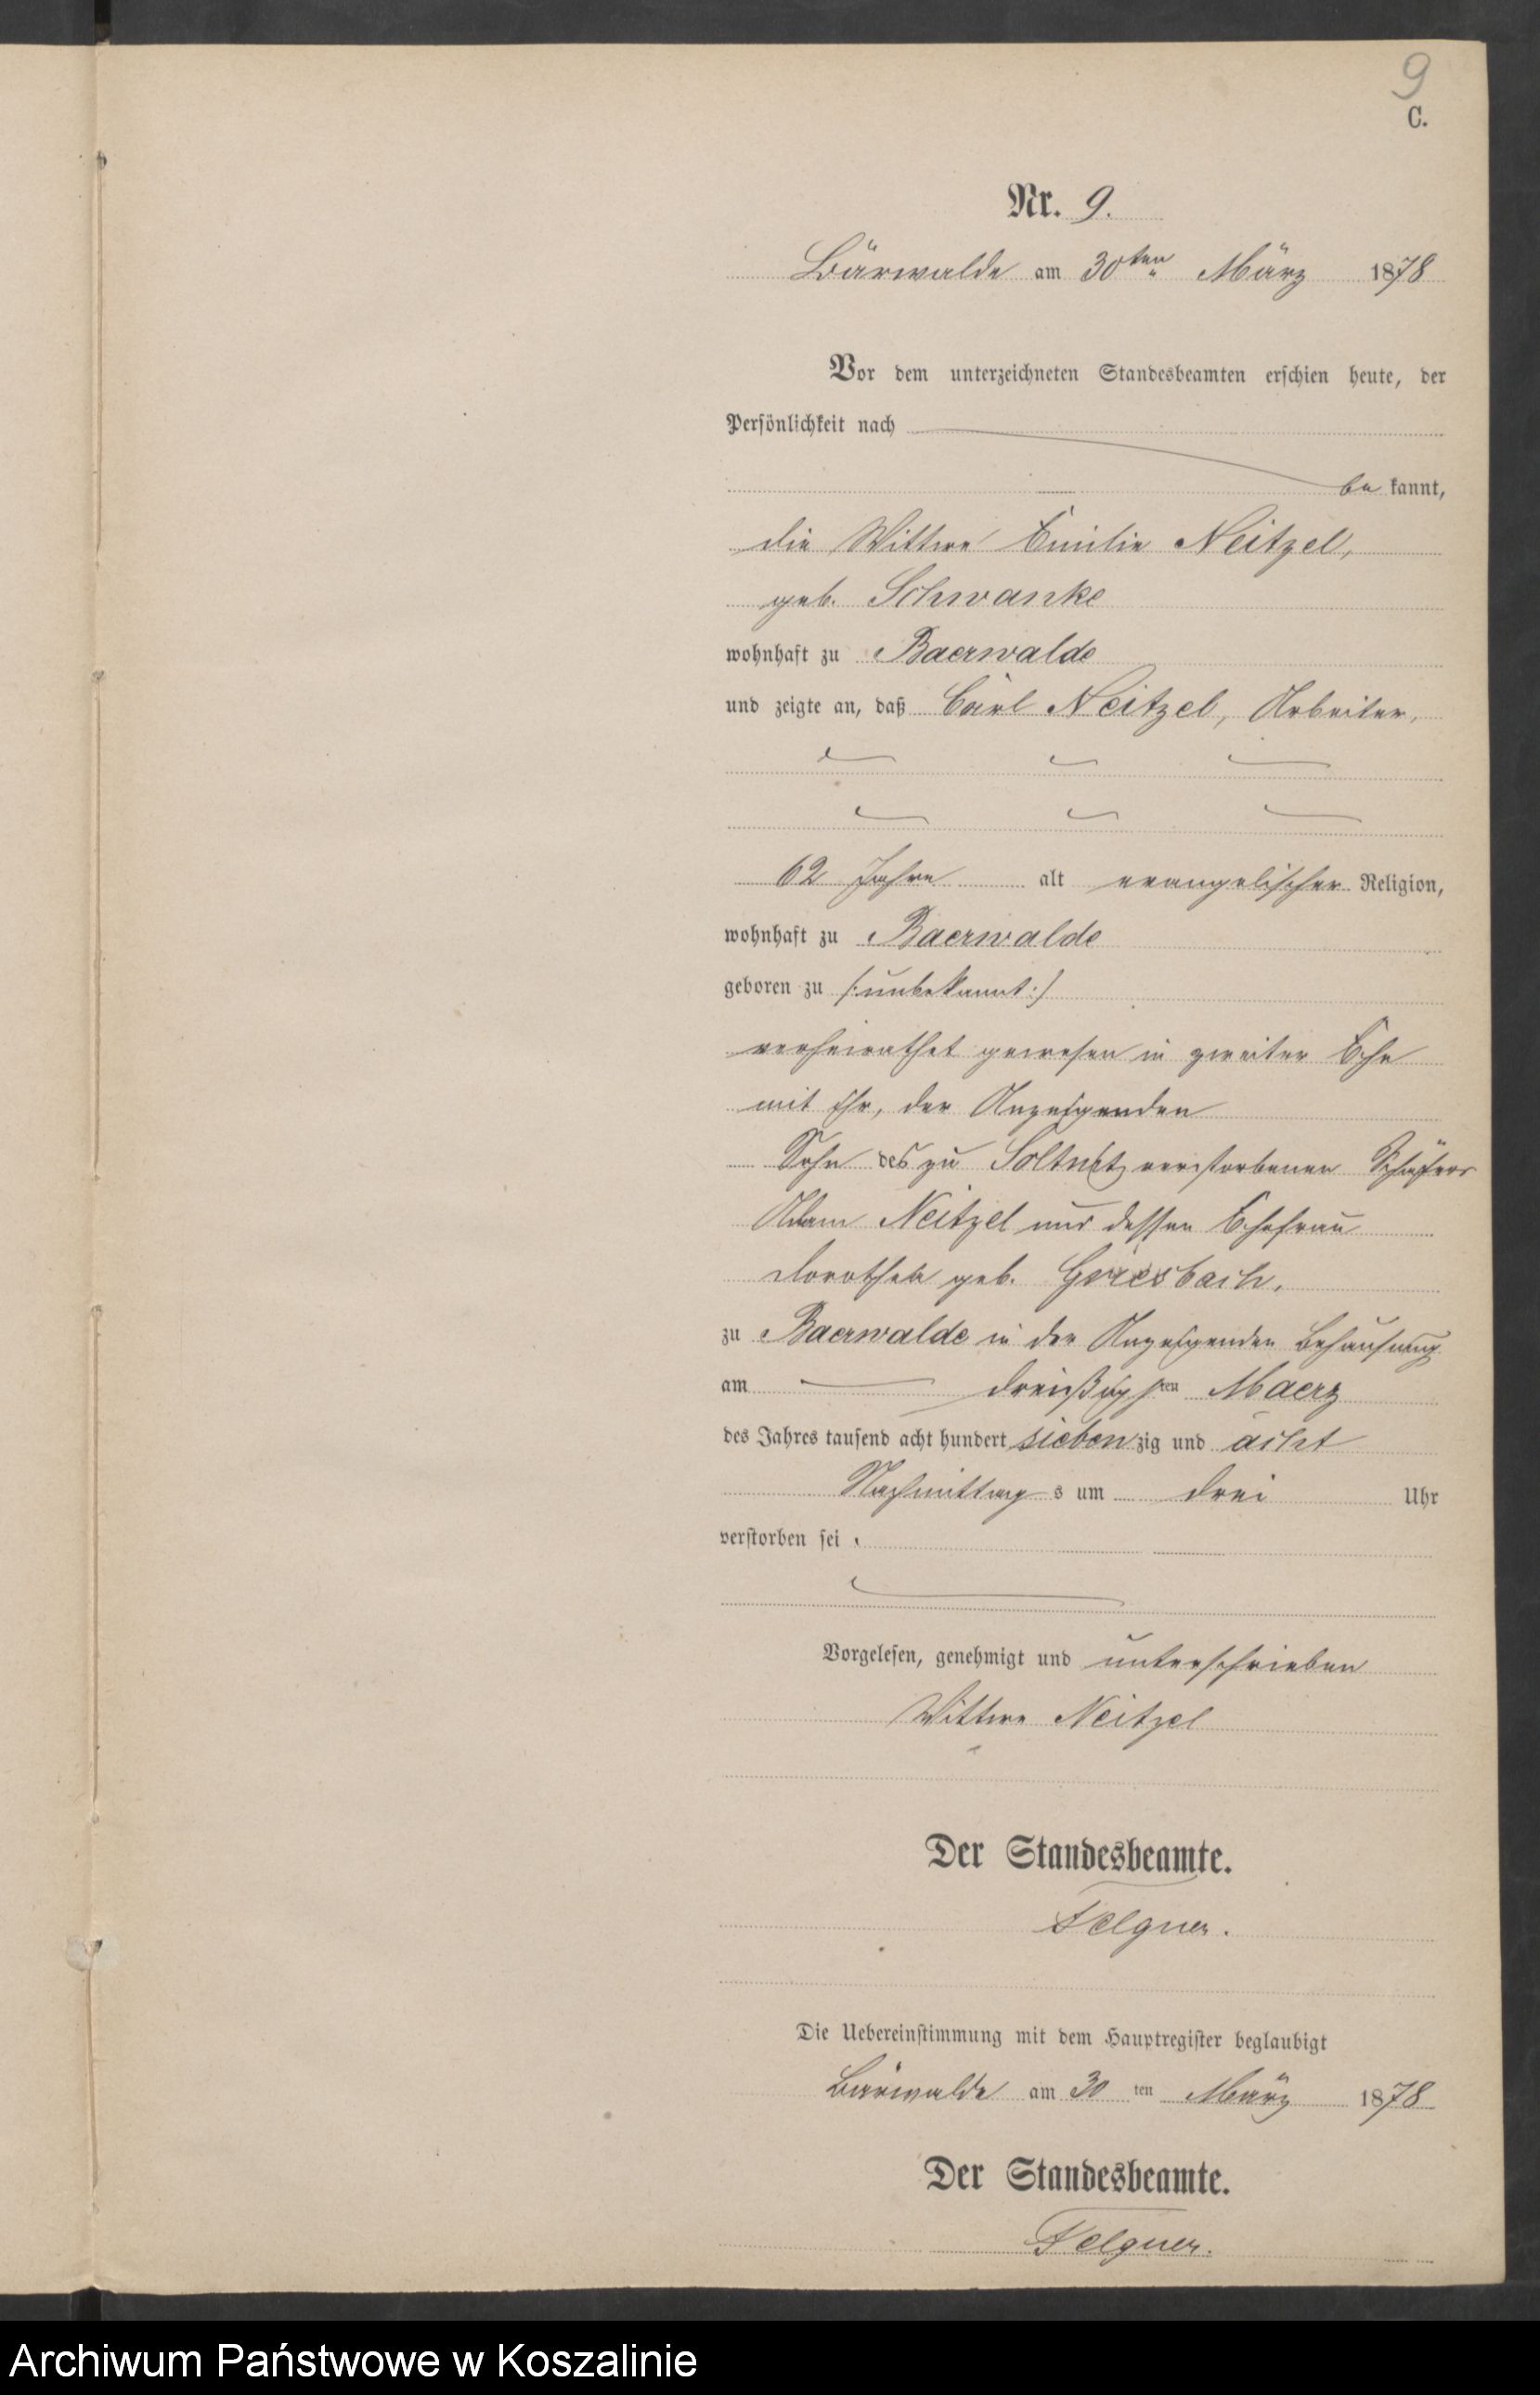 9
C.
Nr. 9.
Bärwalde am 30ten März 1878
Vor dem unterzeichneten Standesbeamten erschien heute, der
Persönlichkeit nach
be kannt,
die Wittwe Emilie Neitzel,
geb. Schwanke
wohnhaft zu Baerwalde
und zeigte an, daß Carl Neitzel, Arbeiter,
62 Jahre alt evangelischer Religion,
wohnhaft zu Baerwalde
geboren zu /:unbekannt:/
verheirathet gewesen in zweiter Ehe
mit ihr, der Anzeigenden
Sohn des zu verstorbenen Schäfers
Adam Neitzel und dessen Ehefrau
Dorothea geb.
zu Baerwalde in der Anzeigenden Behausung
am dreißigsten Maerz
des Jahres tausend acht hundert siebenzig und acht
Nachmittags um drei Uhr
verstorben sei.
Vorgelesen, genehmigt und unterschrieben
Wittwe Neitzel
Der Standesbeamte.
Felgner.
Die Uebereinstimmung mit dem Hauptregister beglaubigt
Bärwalde am 30ten März 1878
Der Standesbeamte.
Felgner.
Archiwum Państwowe w Koszalinie